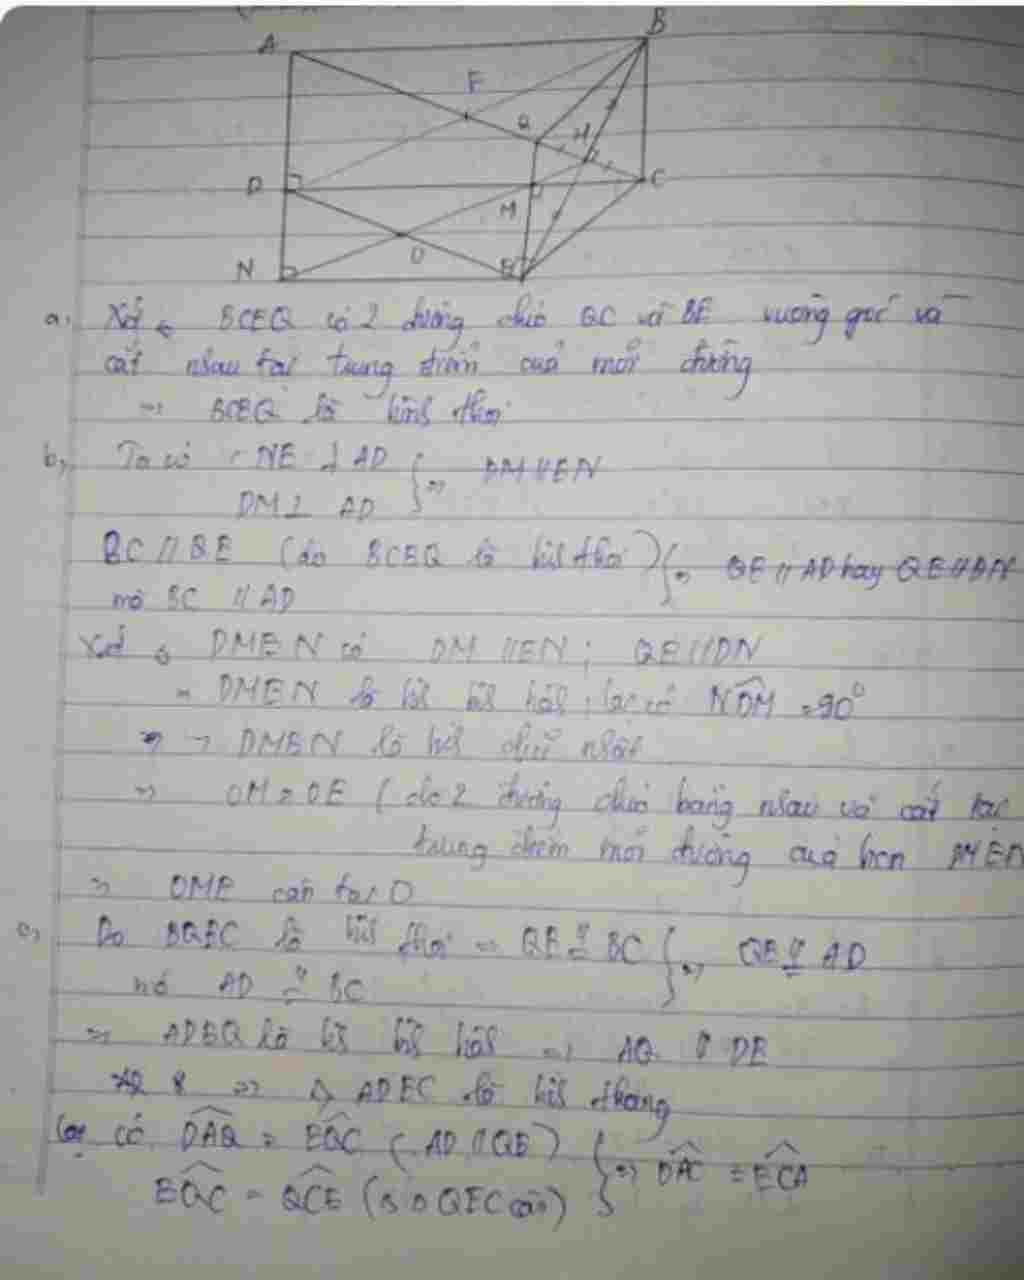 A
B
F
Q
H
D
C
M
O
N
E
a, Xét ◇ BCEQ có 2 đường chéo QC và BE vuông góc và
cắt nhau tại trung điểm của mỗi đường
=> BCEQ là hình thoi
b, Ta có : NE ⊥ AD } => DM // EN
DM ⊥ AD
BC // QE (do BCEQ là hình thoi) } => QE // AD hay QE // DN
mà BC // AD
Xét ◇ DMEN có DM // EN ; QE // DN
=> DMEN là hình bình hành ; lại có NDM = 90°
=> DMEN là hình chữ nhật
=> OM = OE (do 2 đường chéo bằng nhau và cắt tại
trung điểm mỗi đường của hcn
=> OME cân tại O
c, Do BQEC là hình thoi => QE // = BC } => QE // = AD
mà AD // = BC
=> ADEQ là hình bình hành => AQ // DE
=> ADEC là hình thang
Lại có DAQ = EQC (AD // QE) } => DAC = ECA
EQC = QCE (Δ QEC cân)